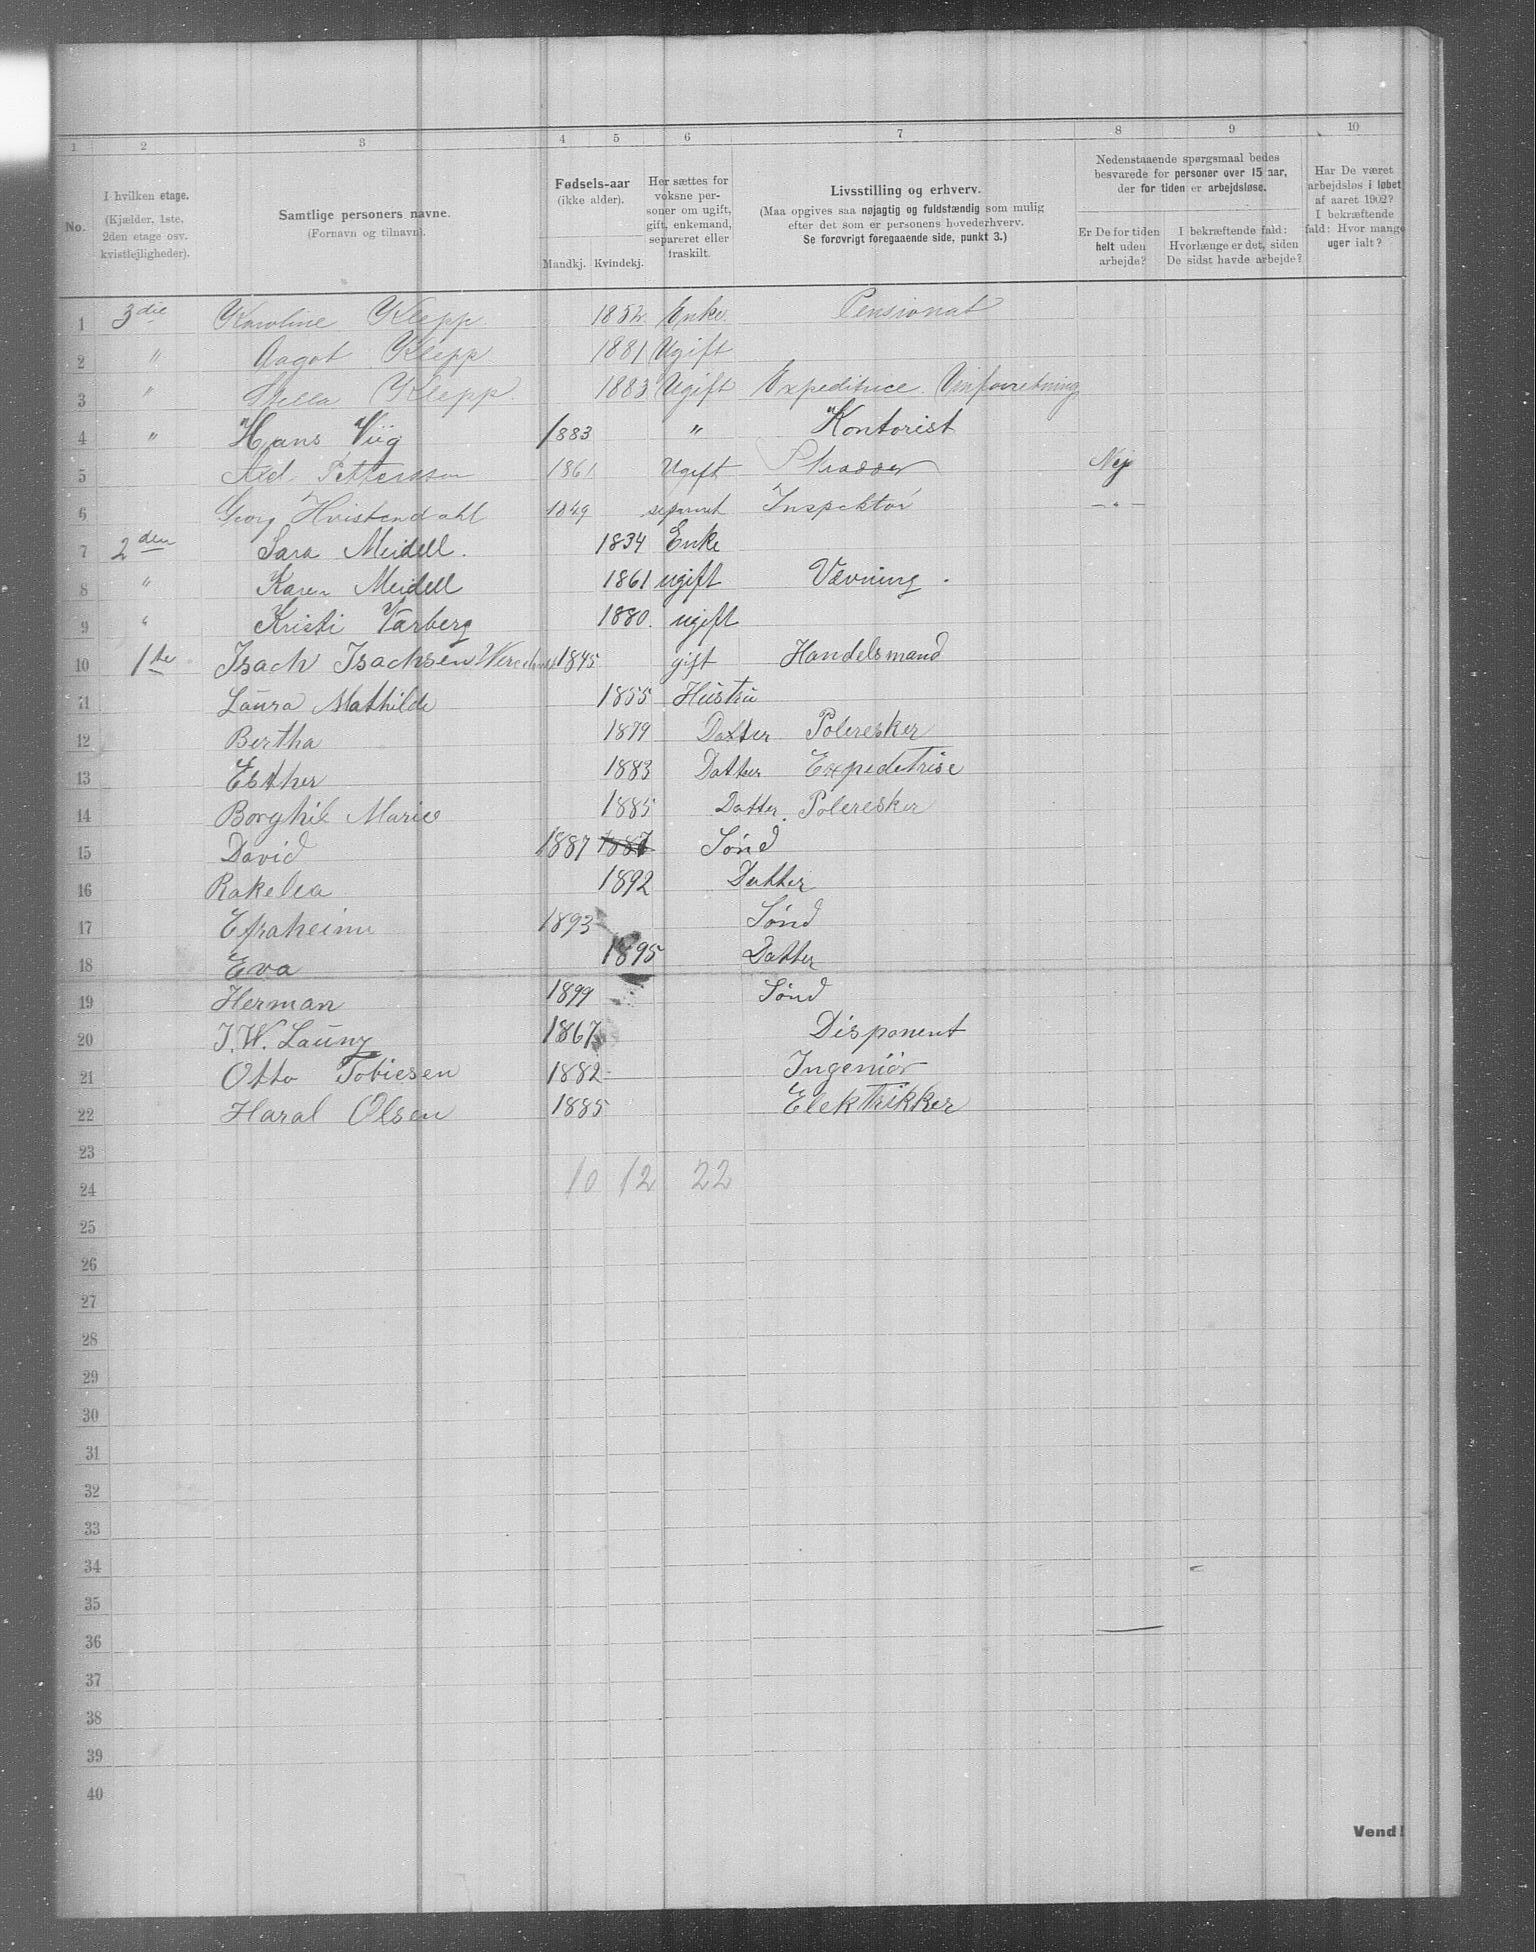 1 2 3 4 5 6 7 8 9 10
No.
I hvilken etage.
(Kjælder, 1ste,
2den etage osv.
kvistlejligheder).
Samtlige personers navne.
(Fornavn og tilnavn).
Fødsels-aar
(ikke alder).
Mandkj. Kvindekj.
Her sættes for
voksne per-
soner om ugift,
gift, enkemand,
separeret eller
fraskilt.
Livsstilling og erhverv.
(Maa opgives saa nøjagtig og fuldstændig som mulig
efter det som er personens hovederhverv.
Se forøvrigt foregaaende side, punkt 3.)
Nedenstaaende spørgsmaal bedes
besvarede for personer over 15 aar,
der for tiden er arbejdsløse.
Er De for tiden
helt uden
arbejde?
I bekræftende fald:
Hvorlænge er det, siden
De sidst havde arbejde?
Har De været
arbejdsløs i løbet
af aaret 1902?
I bekræftende
fald: Hvor mange
uger ialt?
1 3die Karoline Klepp 1852 Enke. Pensionat
2 " Aagot Klepp 1881 Ugift
3 " Stella Klepp. 1883 Ugift Expeditrice Vinforretning
4 " Hans Viig 1883 " Kontorist
5 Axel Pettersson 1861 Ugift Skrædder Nej
6 Georg Hvistendahl 1849 separet Inspektør -"-
7 2den Sara Meidell. 1834 Enke
8 " Karen Meidell 1861 ugift Vævning.
9 " Kristi Varberg 1880. ugift
10 1ste Isach Isachsen 1845 gift Handelsmand
11 Laura Mathilde 1855 Hustru
12 Bertha 1879 Datter Poleresker
13 Esther 1883 Datter Expedetrise
14 Borghil Marie 1885 Datter. Poleresker
15 David 1887 1887 Sønd
16 Rakelea 1892 Datter
17 Efraheim 1893 Sønd
18 Eva 1895 Datter
19 Herman 1899 Sønd
20 J. W. Launy 1867 Disponent
21 Otto Tobiesen 1882 Ingeniør
22 Haral Olsen 1885 Elektrikker
23
24 10 12 22
25
26
27
28
29
30
31
32
33
34
35
36
37
38
39
40
Vend!